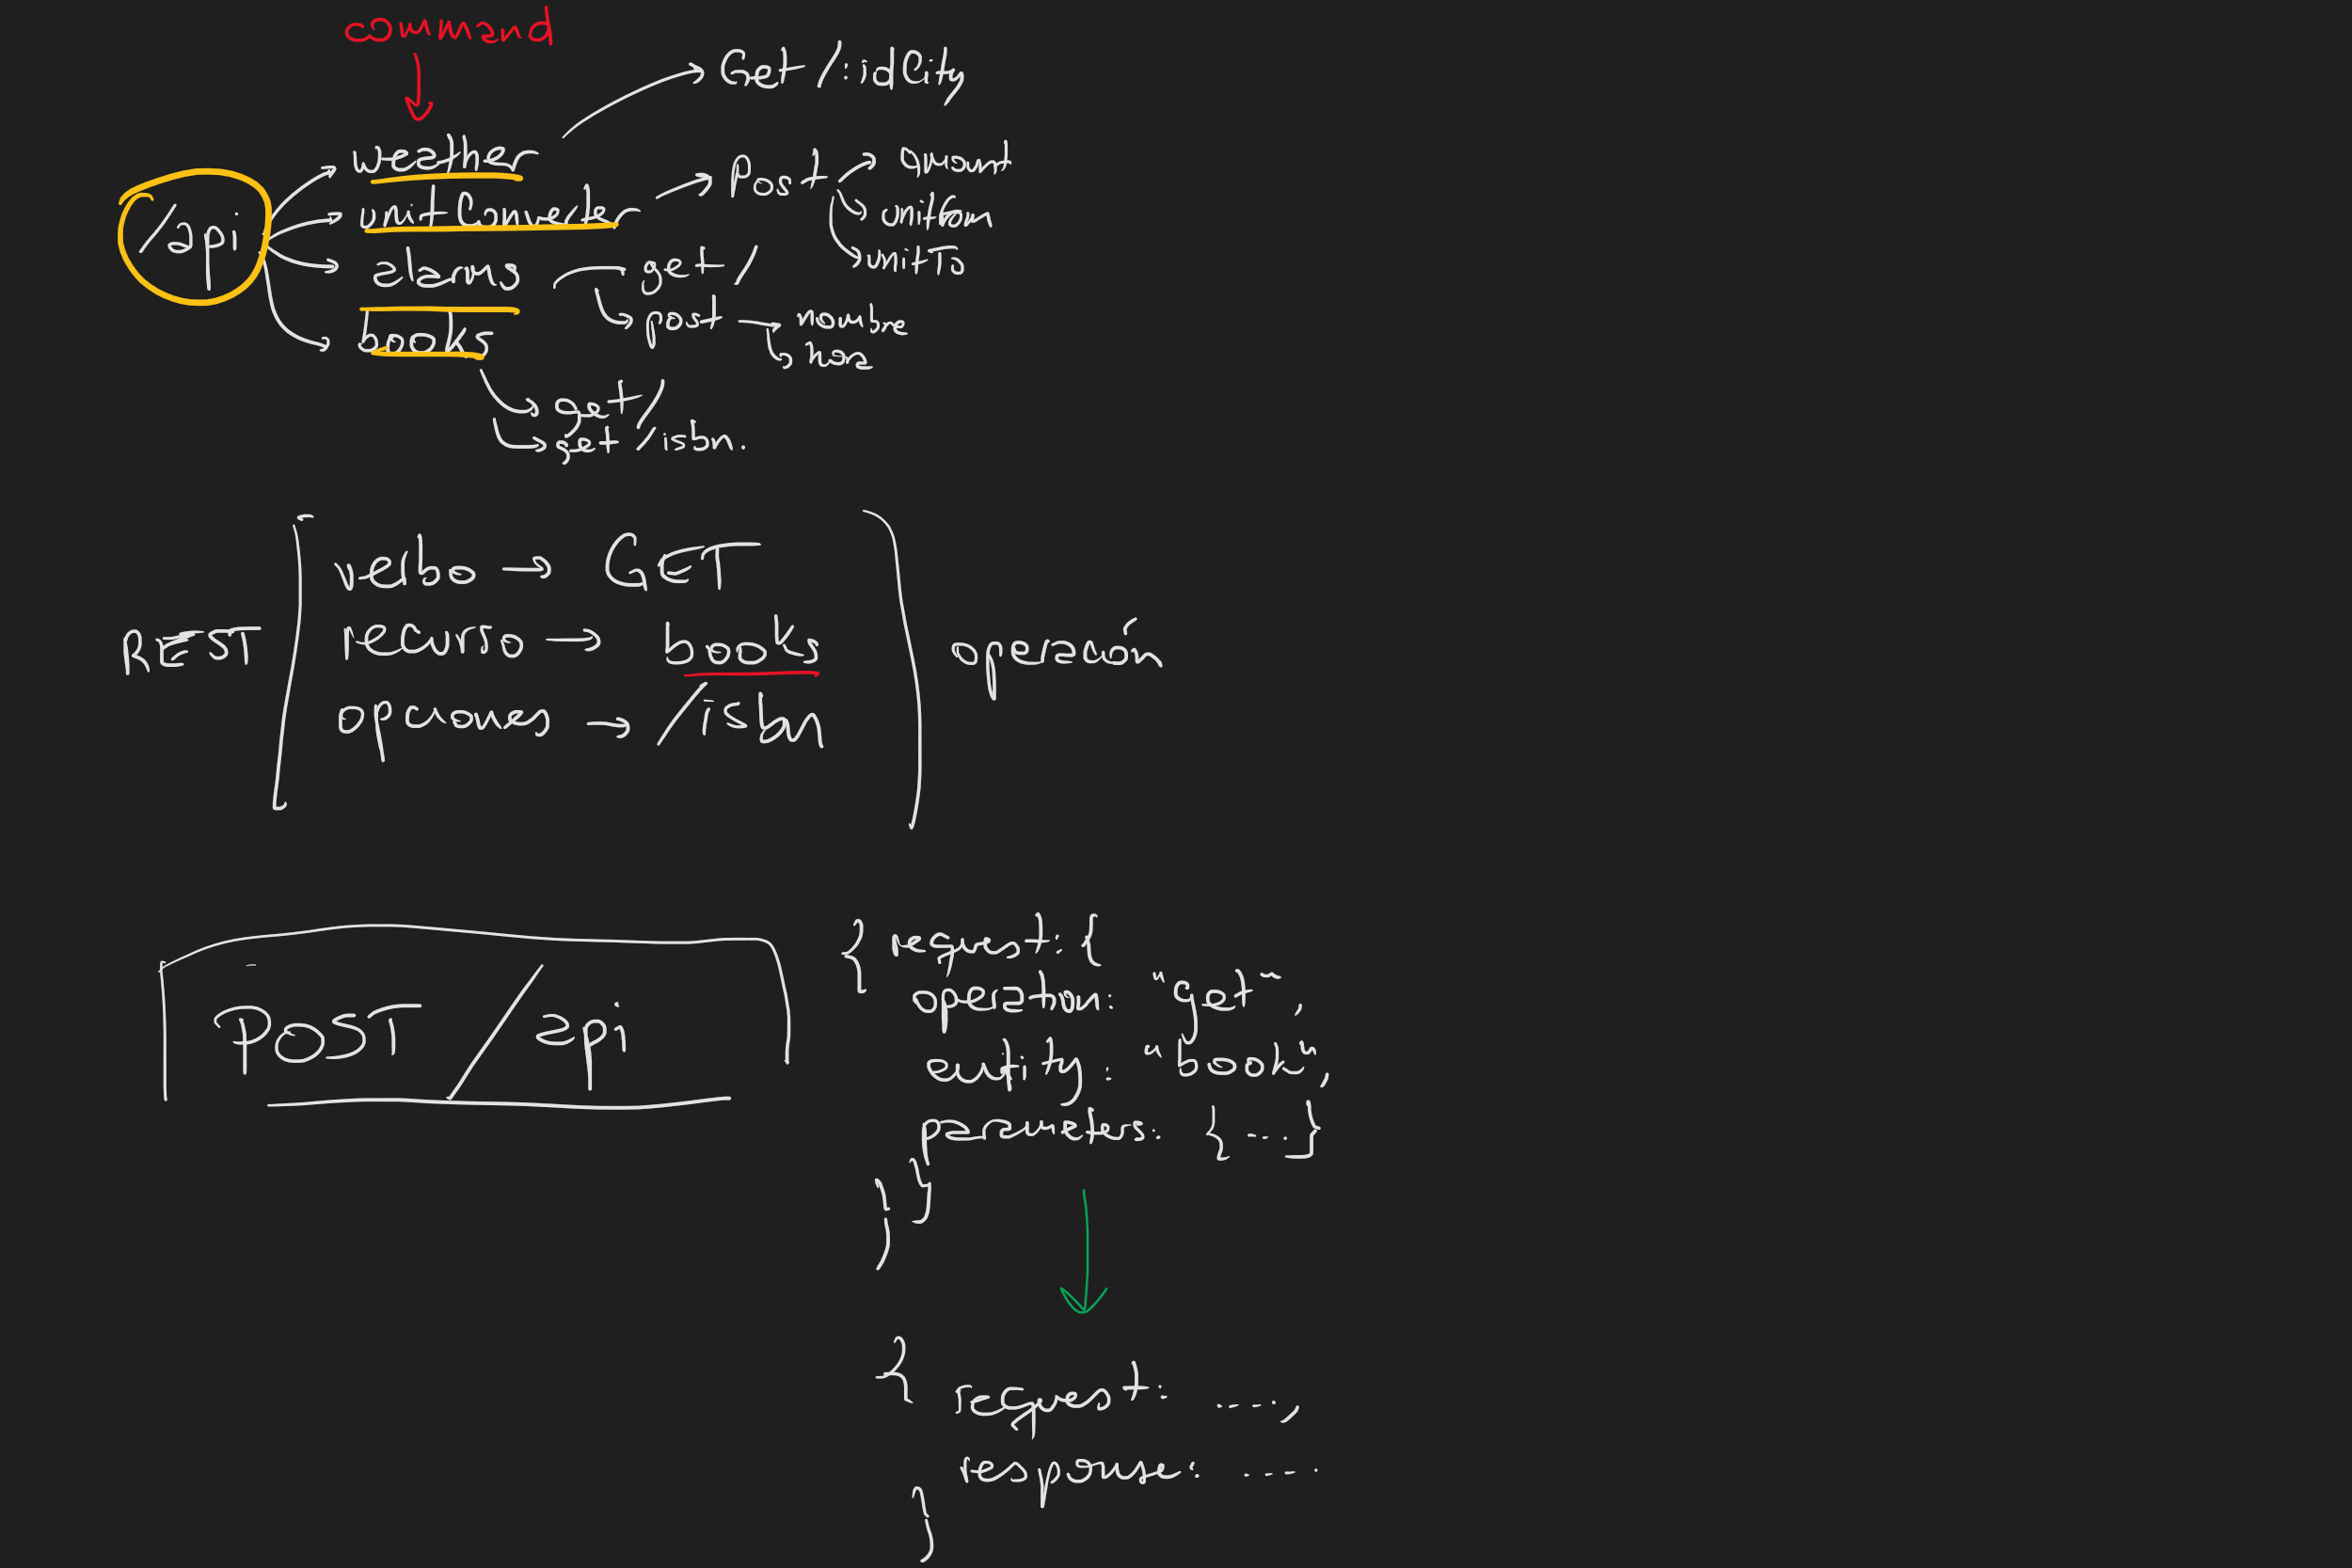 command
weather
Get /:idCity
/api
unitConverter
Post
amount
unitFrom
unitTo
alarms
get /
post
nombre
books
get /
get /isbn.
verbo → GET
REST
recurso → books
operación
opciones → /isbn
POST /api
{ request: {
operation: "get",
entity: "book",
parameters: {...}
}
}
{
request: ....,
response: ....
}